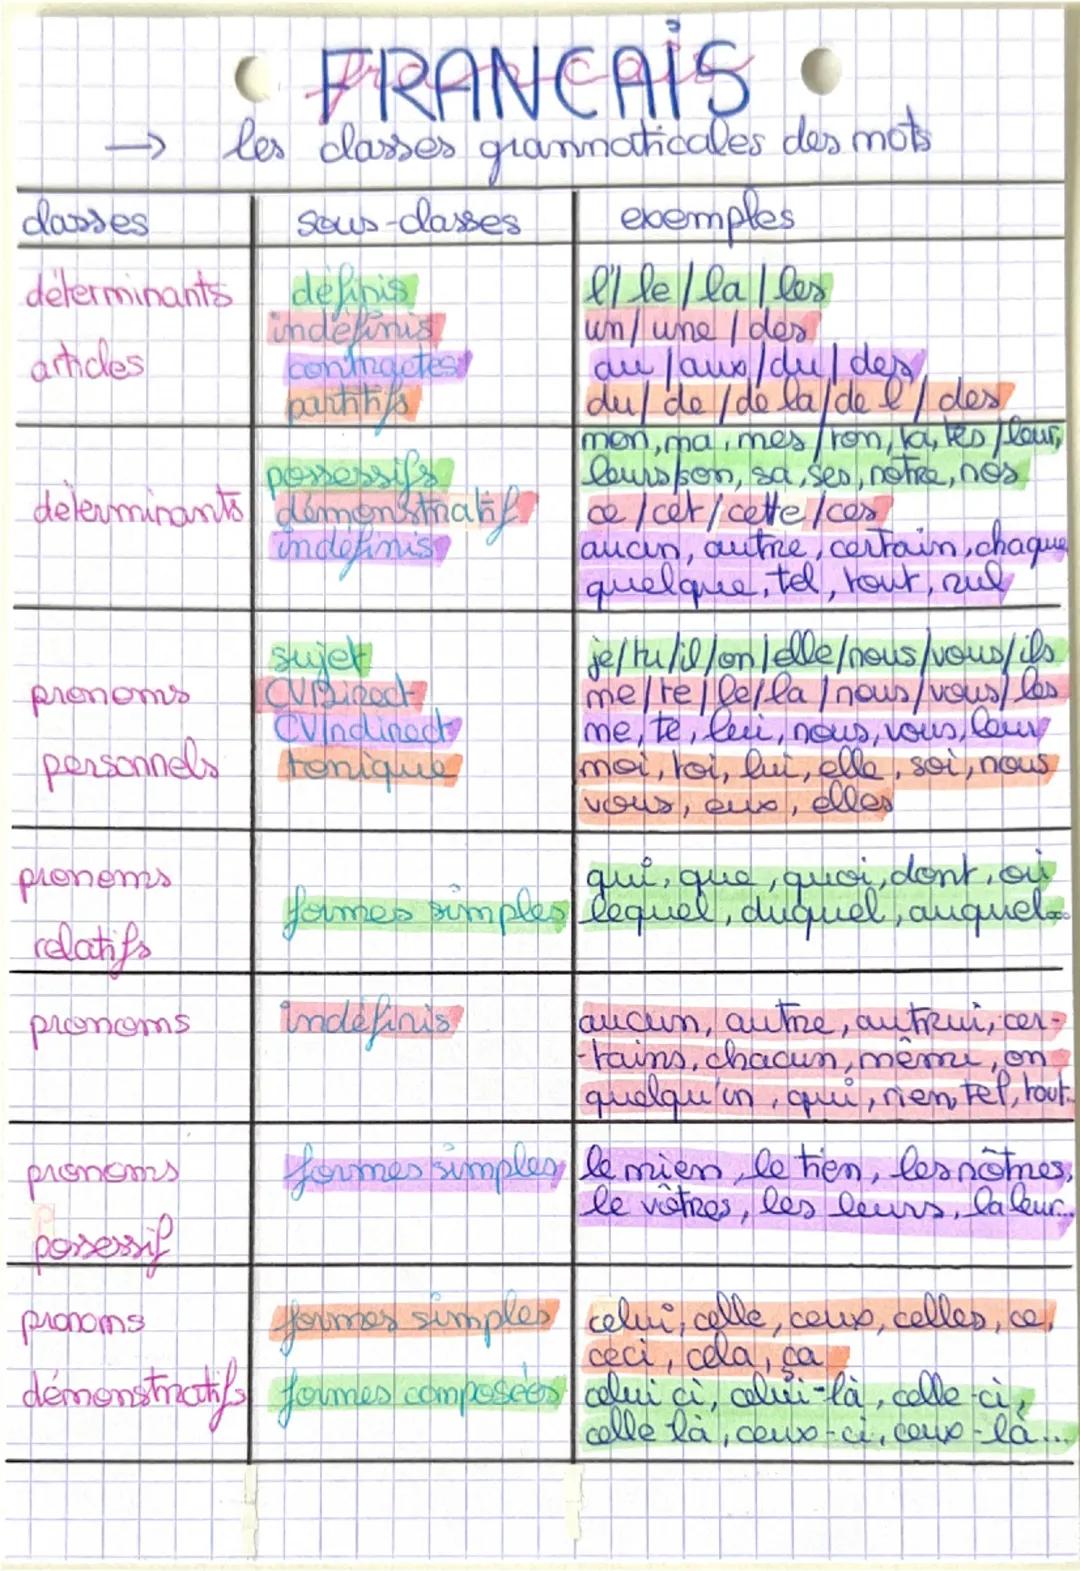 FRANCAİS
→ les classes grammaticales des mots
classes sous-classes exemples
déterminants définis l'/ le / la / les
indéfinis un / une / des
articles contractes au / aux / du / des
partitifs du / de / de la / de l' / des
mon, ma, mes / ton, ta, tes / leur,
possessifs leurs son, sa, ses, notre, nos
déterminants démonstratif ce / cet / cette / ces
indéfinis aucun, autre, certain, chaque
quelque, tel, tout, nul
sujet je / tu / il / on / elle / nous / vous / ils
pronoms CVDirect me / te / le / la / nous / vous / les
CVIndirect me, te, lui, nous, vous, leur
personnels tonique moi, toi, lui, elle, soi, nous
vous, eux, elles
pronoms qui, que, quoi, dont, où
formes simples lequel, duquel, auquel...
relatifs
pronoms indéfinis aucun, autre, autrui, cer-
-tains, chacun, même, on
quelqu'un, qui, rien, tel, tout..
pronoms formes simples le mien, le tien, les nôtres,
le vôtres, les leurs, la leur...
posessif
pronoms formes simples celui, celle, ceux, celles, ce,
ceci, cela, ça
démonstratifs formes composées celui ci, celui-là, celle-ci,
celle là, ceux-ci, ceux-là...